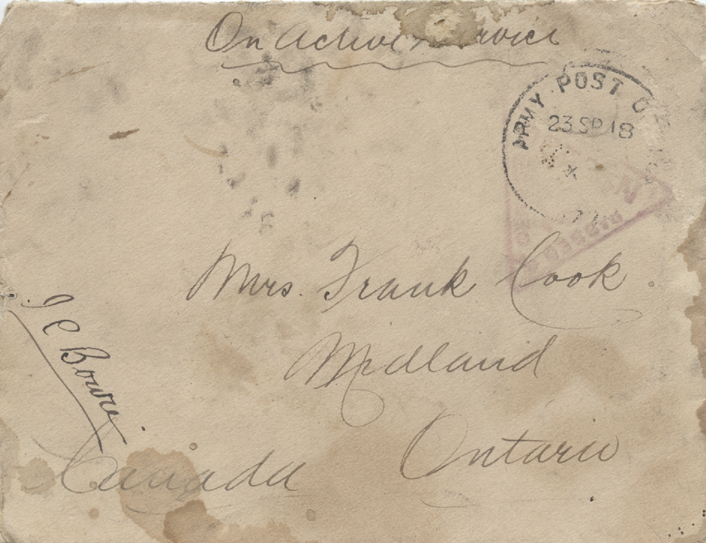 On Active Service
ARMY POST O
23 SP 18
PASSED
No
Mrs. Frank Cook
Midland
Ontario
Canada
J C Bowie